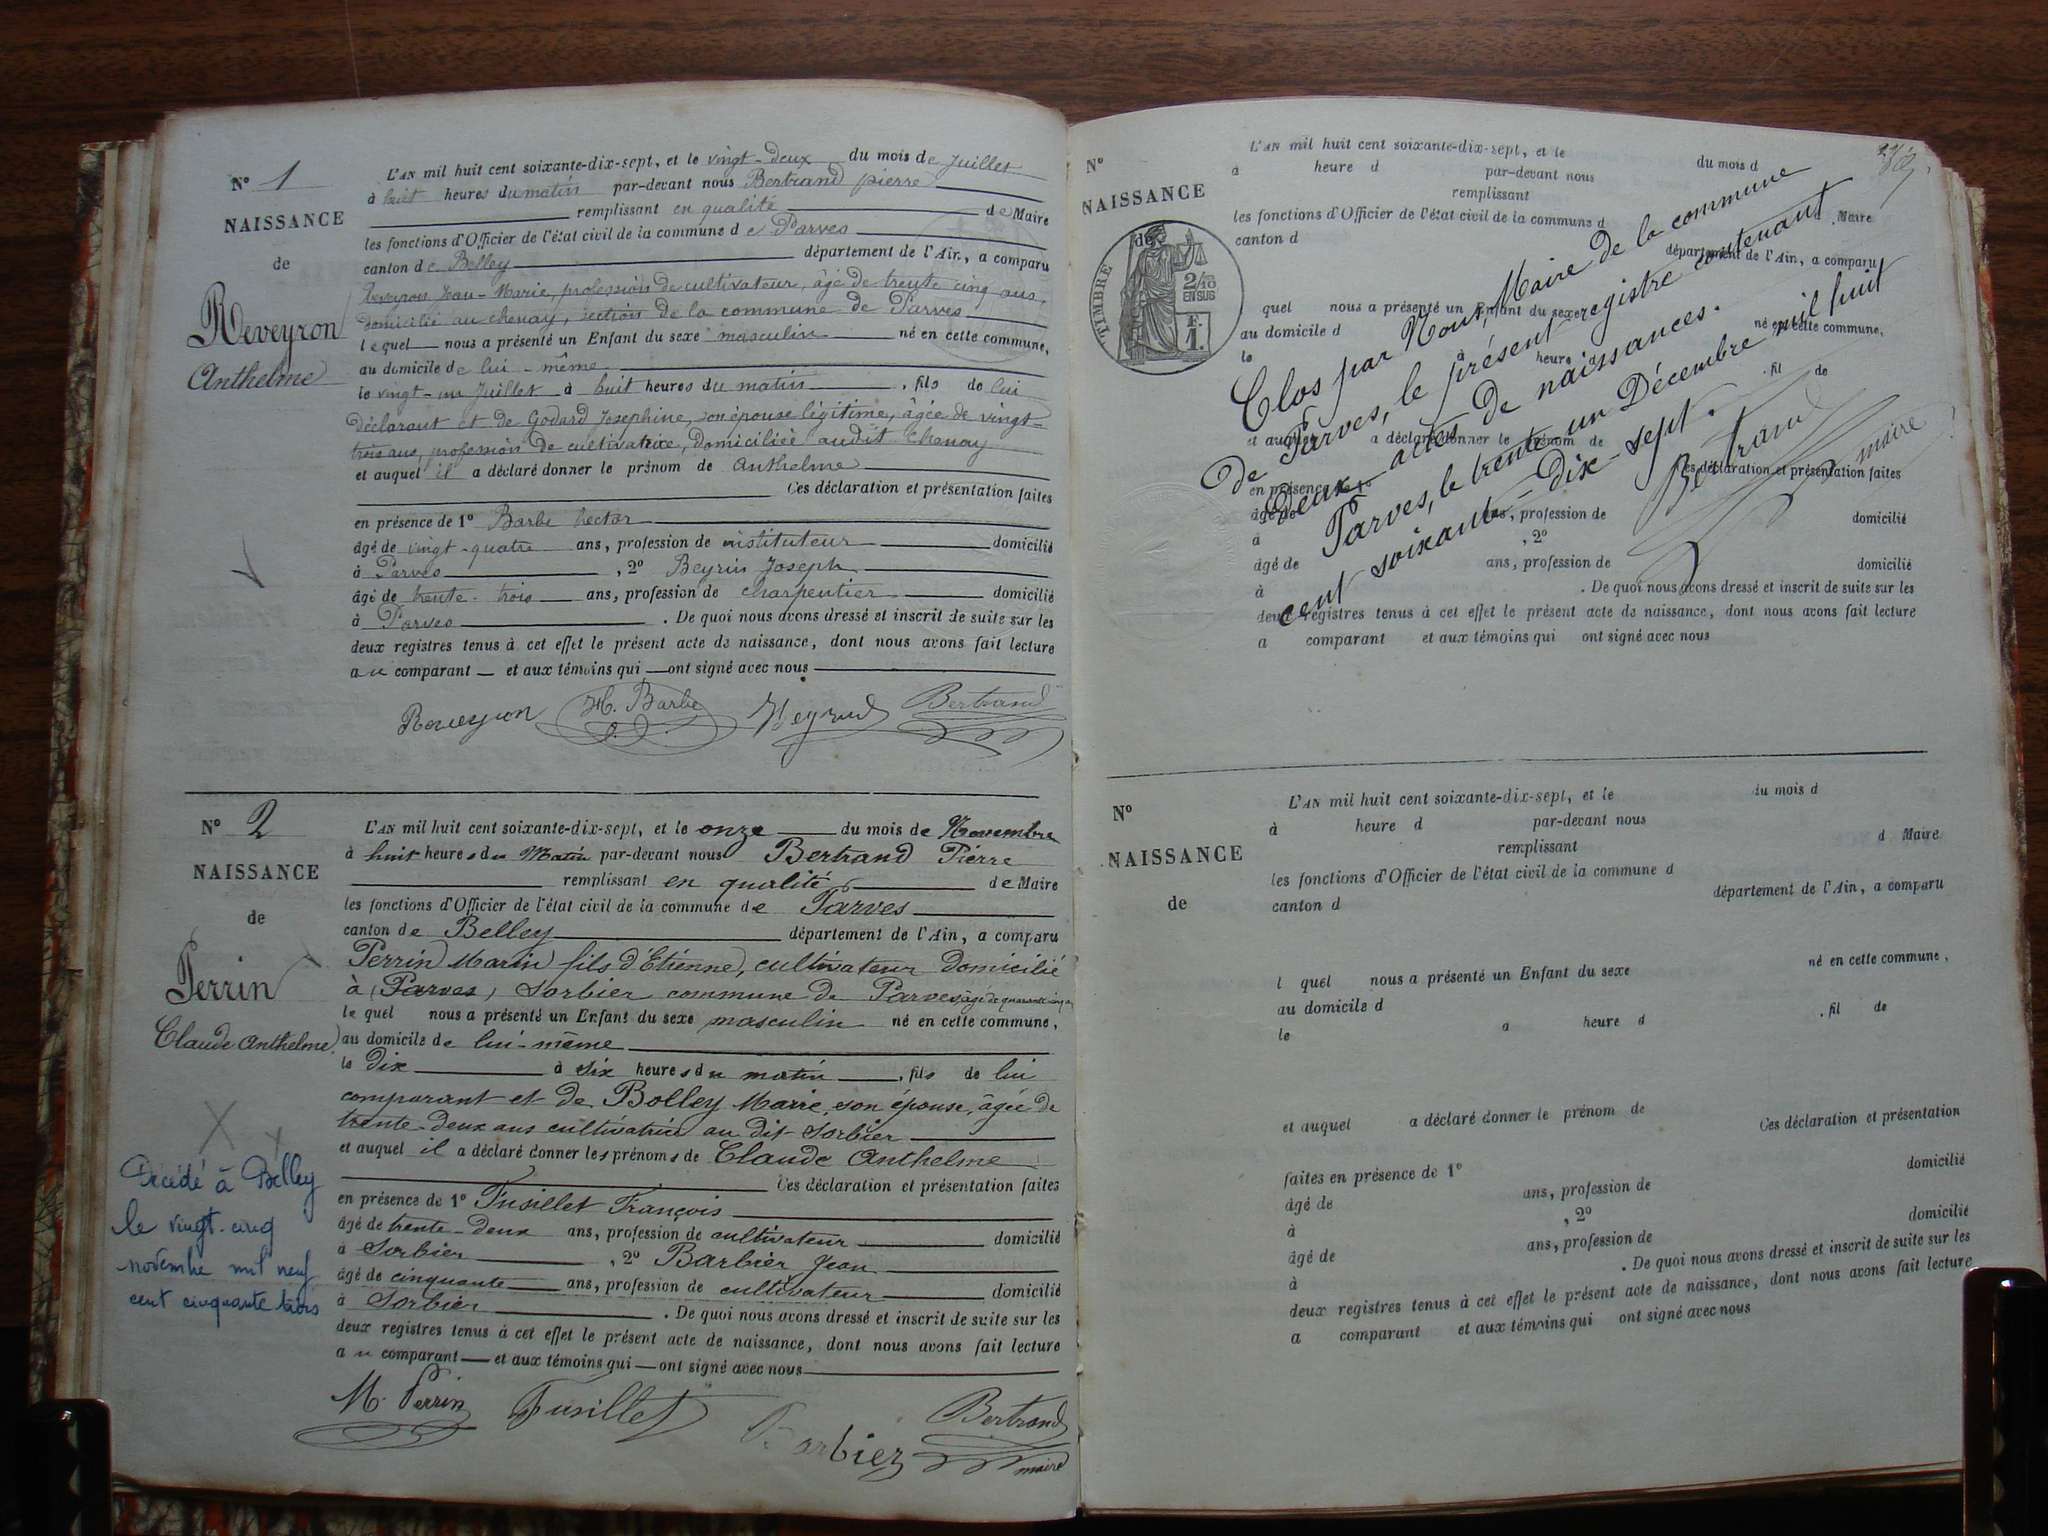 N° 1
NAISSANCE
de
Reveyron
Anthelme
L'AN mil huit cent soixante-dix-sept, et le vingt-deux du mois de Juillet
à huit heures du matin par-devant nous Bertrand pierre
remplissant en qualité de Maire
les fonctions d'Officier de l'état civil de la commune de Parves
canton de Belley département de l'Ain, a comparu
Reveyron Jean-Marie, profession de cultivateur, âgé de trente cinq ans,
domicilié au chenay, section de la commune de Parves
lequel nous a présenté un Enfant du sexe masculin né en cette commune,
au domicile de lui-même
le vingt-un Juillet à huit heures du matin, fils de lui
déclarant et de Godard Josephine, son épouse légitime, âgée de vingt-
trois ans, profession de cultivatrice, domiciliée audit Chenay
et auquel il a déclaré donner le prénom de Anthelme
Ces déclaration et présentation faites
en présence de 1° Barbe hector
âgé de vingt-quatre ans, profession de instituteur domicilié
à Parves, 2° Beyrin Joseph
âgé de trente-trois ans, profession de charpentier domicilié
à Parves. De quoi nous avons dressé et inscrit de suite sur les
deux registres tenus à cet effet le présent acte de naissance, dont nous avons fait lecture
au comparant et aux témoins qui ont signé avec nous
Reveyron H. Barbe Bertrand
N° 2
NAISSANCE
de
Perrin
Claude Anthelme
L'AN mil huit cent soixante-dix-sept, et le onze du mois de Novembre
à huit heures du Matin par-devant nous Bertrand Pierre
remplissant en qualité de Maire
les fonctions d'Officier de l'état civil de la commune de Parves
canton de Belley département de l'Ain, a comparu
Perrin Marin fils d'Etienne, cultivateur domicilié
à (Parves) Sorbier commune de Parves âgé de quarante cinq ans
lequel nous a présenté un Enfant du sexe masculin né en cette commune,
au domicile de lui-même
le dix à six heures du matin, fils de lui
comparant et de Bolley Marie, son épouse, âgée de
trente-deux ans cultivatrice au dit Sorbier
et auquel il a déclaré donner les prénoms de Claude Anthelme
Ces déclaration et présentation faites
en présence de 1° Fusillet François
âgé de trente-deux ans, profession de cultivateur domicilié
à Sorbier, 2° Barbier Jean
âgé de cinquante ans, profession de cultivateur domicilié
à Sorbier. De quoi nous avons dressé et inscrit de suite sur les
deux registres tenus à cet effet le présent acte de naissance, dont nous avons fait lecture
au comparant et aux témoins qui ont signé avec nous
M. Perrin Fusillet Barbier Bertrand
maire
Décédé à Belley
le vingt-cinq
novembre mil neuf
cent cinquante trois
N°
NAISSANCE
de
TIMBRE
2/10
EN SUS
F.
1.
L'AN mil huit cent soixante-dix-sept, et le du mois d
à heure d par-devant nous
remplissant Maire
les fonctions d'Officier de l'état civil de la commune d
canton d département de l'Ain, a comparu
quel nous a présenté un Enfant du sexe né en cette commune,
au domicile d
le heure fil de
et auquel a déclaré donner le prénom de
Ces déclaration et présentation faites
en présence de 1°
âgé de ans, profession de domicilié
à , 2°
âgé de ans, profession de domicilié
à . De quoi nous avons dressé et inscrit de suite sur les
deux registres tenus à cet effet le présent acte de naissance, dont nous avons fait lecture
a comparant et aux témoins qui ont signé avec nous
Clos par Nous, Maire de la commune
de Parves, le présent registre contenant
deux actes de naissances.
Parves, le trente-un Décembre mil huit
cent soixante-dix-sept.
Bertrand maire
N°
NAISSANCE
de
L'AN mil huit cent soixante-dix-sept, et le du mois d
à heure d par-devant nous
remplissant d Maire
les fonctions d'Officier de l'état civil de la commune d
canton d département de l'Ain, a comparu
l quel nous a présenté un Enfant du sexe né en cette commune,
au domicile d
le a heure d , fil de
et auquel a déclaré donner le prénom de
Ces déclaration et présentation
faites en présence de 1° domicilié
âgé de ans, profession de
à , 2° domicilié
âgé de ans, profession de
à . De quoi nous avons dressé et inscrit de suite sur les
deux registres tenus à cet effet le présent acte de naissance, dont nous avons fait lecture
a comparant et aux témoins qui ont signé avec nous